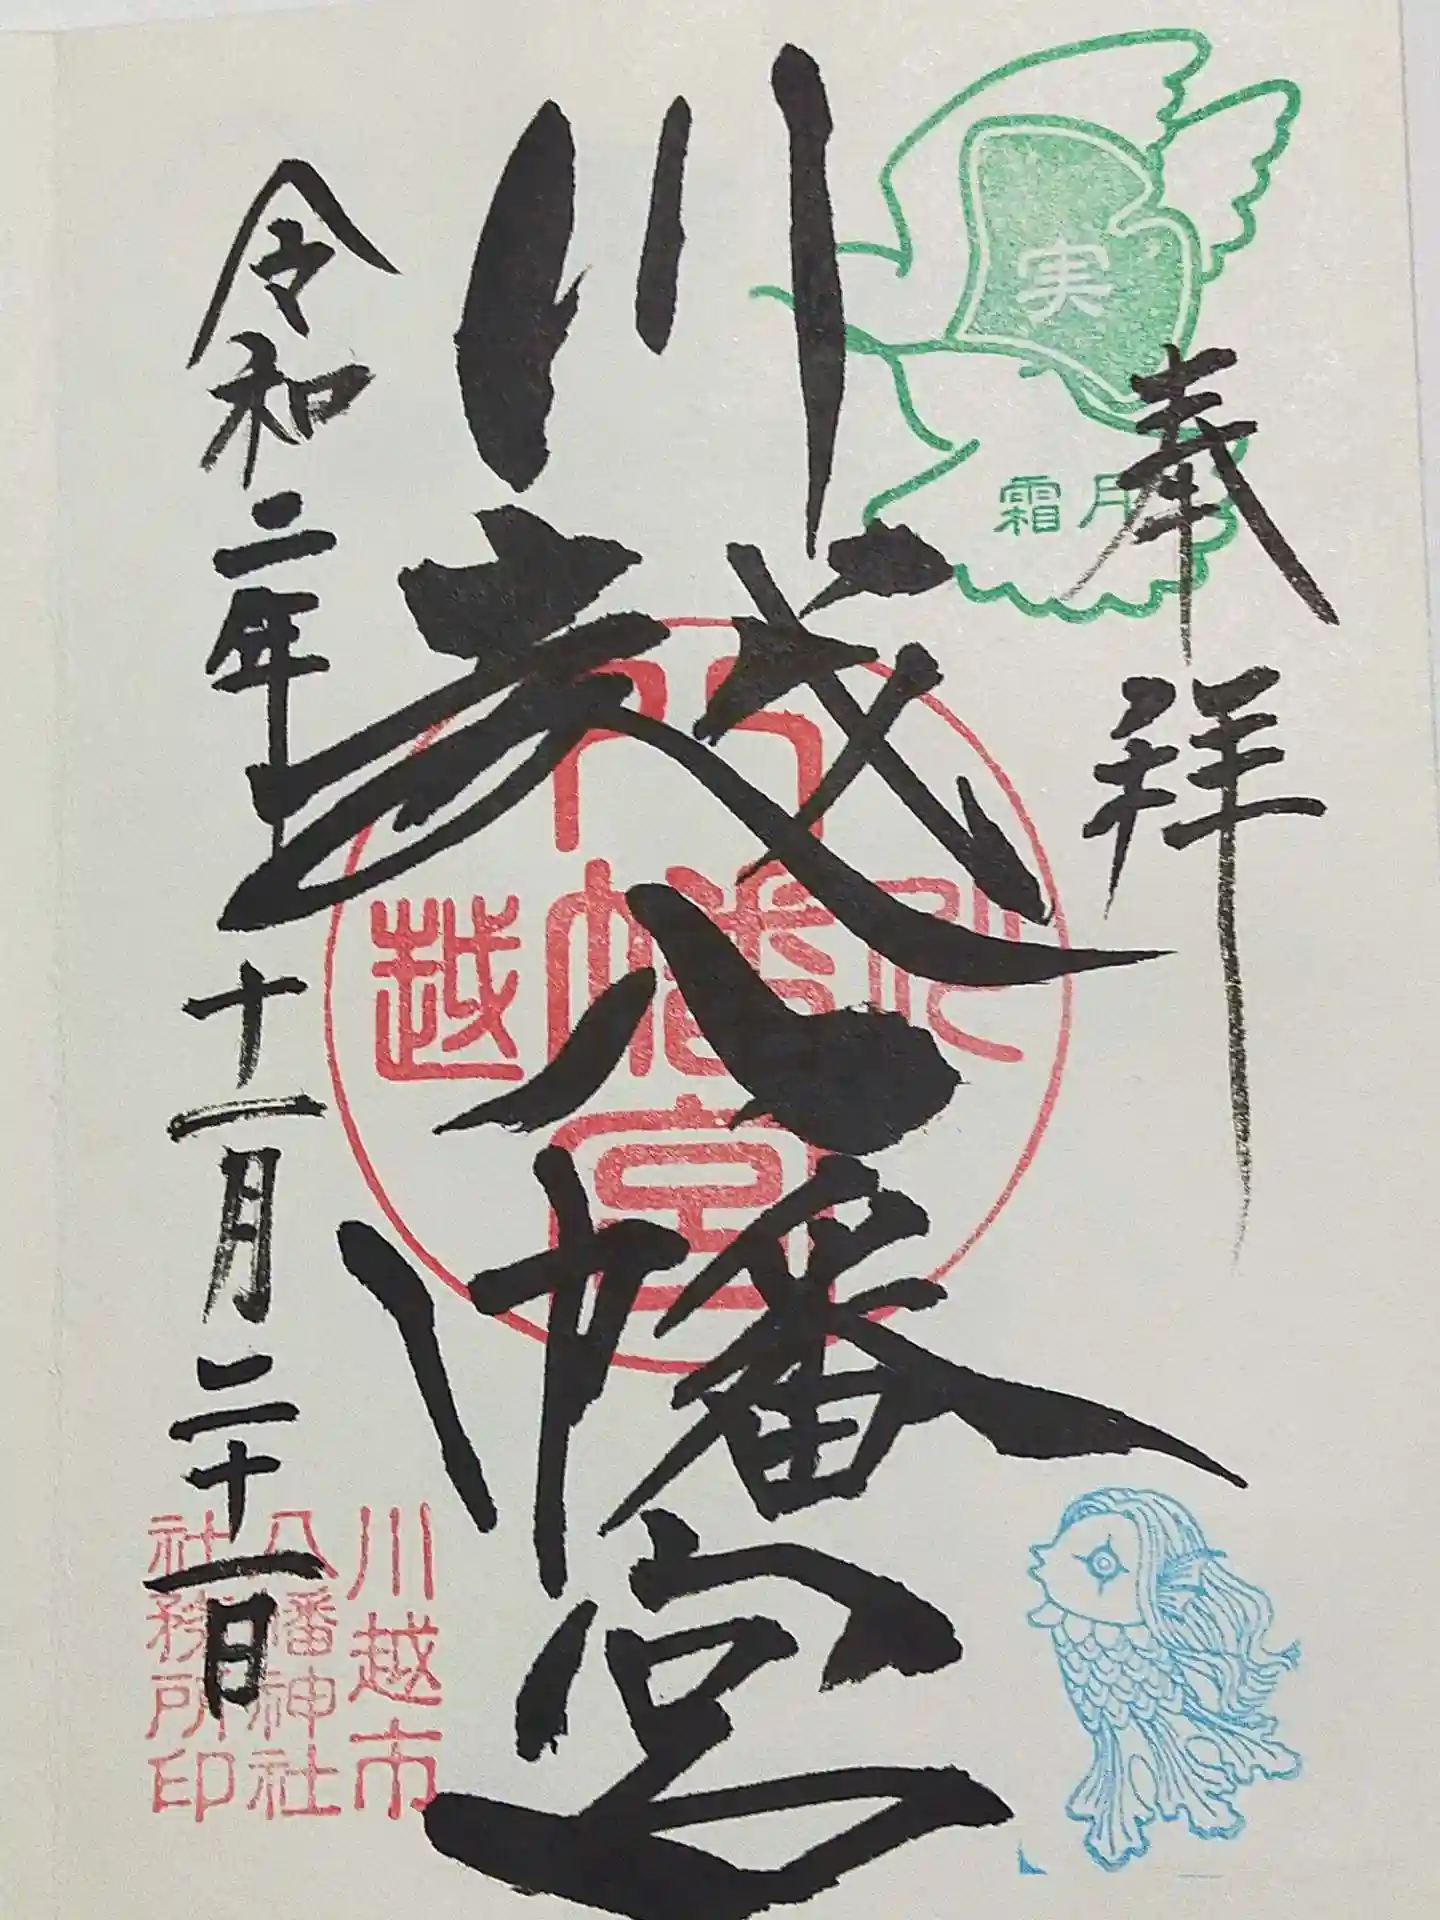 奉拝
実
霜月
川越八幡宮
八幡宮
川
越
令和二年十一月二十一日
川越市
八幡神社
社務所印